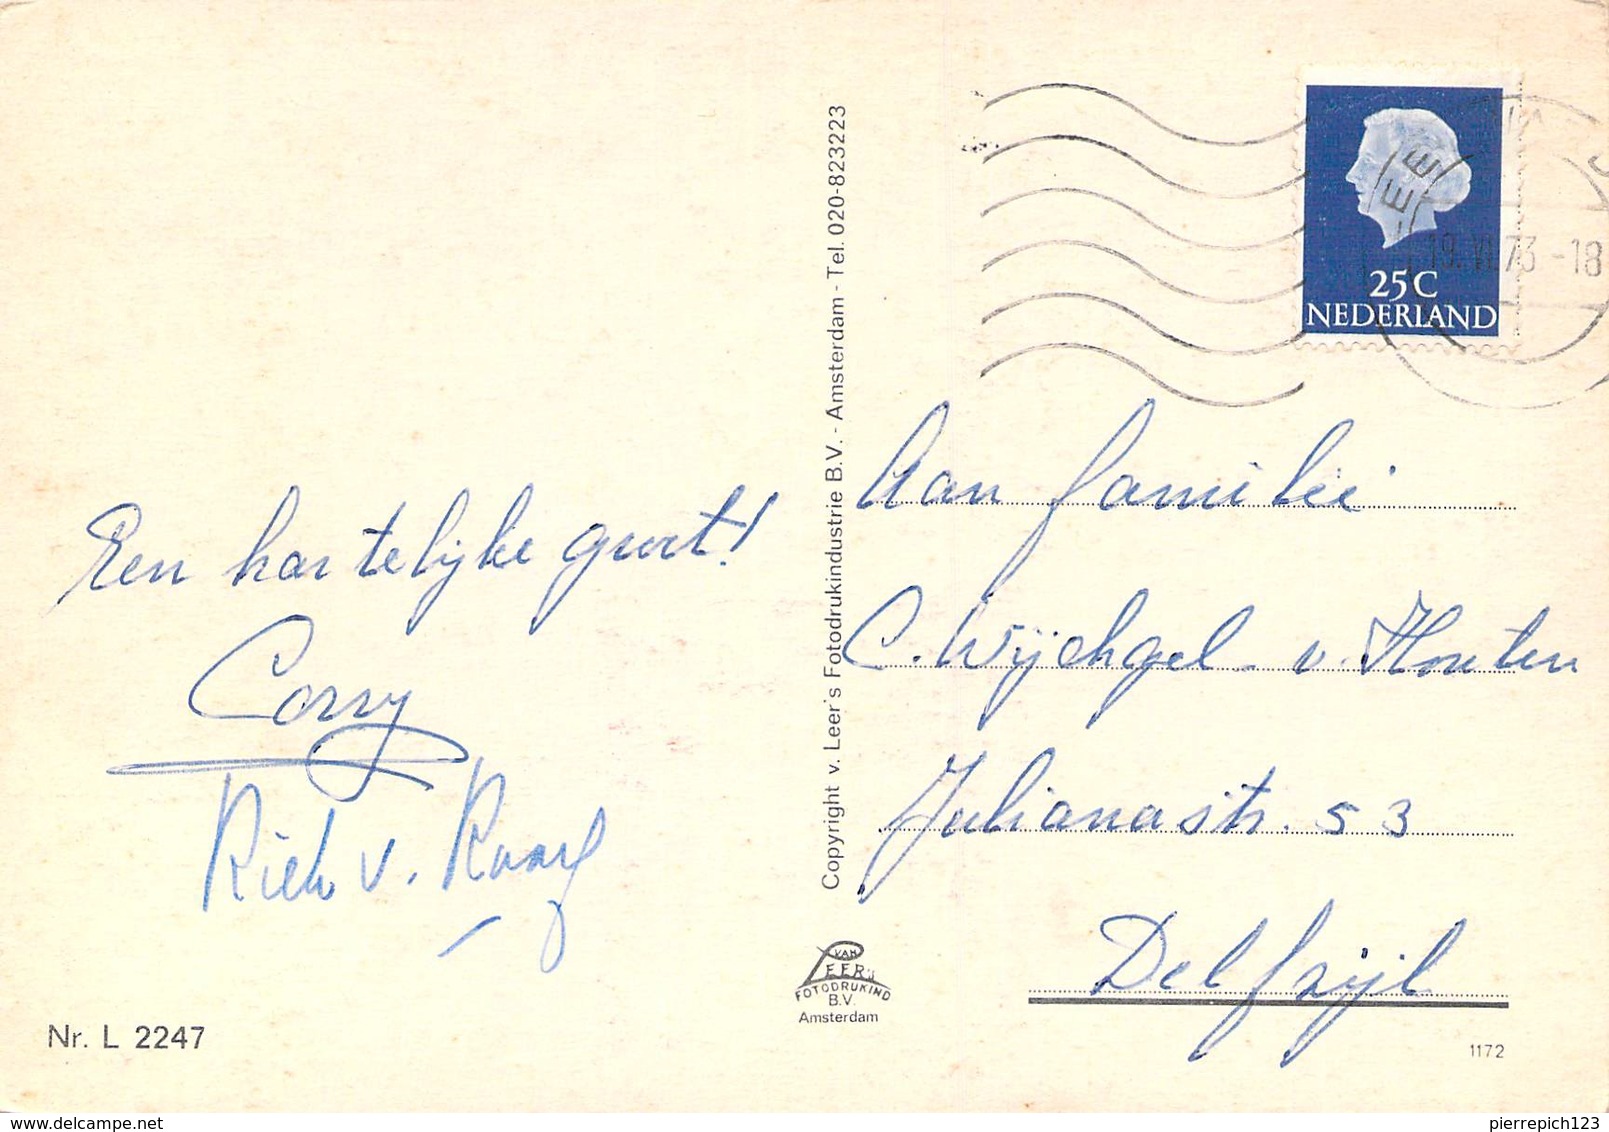 Een hartelijke groet!
Corry
Rieh v. Raay
Nr. L 2247
Copyright v. Leer's Fotodrukindustrie B.V. - Amsterdam - Tel. 020-823223
VAN
LEER'S
FOTODRUKIND
B.V.
Amsterdam
25C
NEDERLAND
19.VI.73-18
Aan familie
C. Wijchgel v. Houten
Julianastr. 53
Delfzijl
1172
delcampe.net
pierrepich123